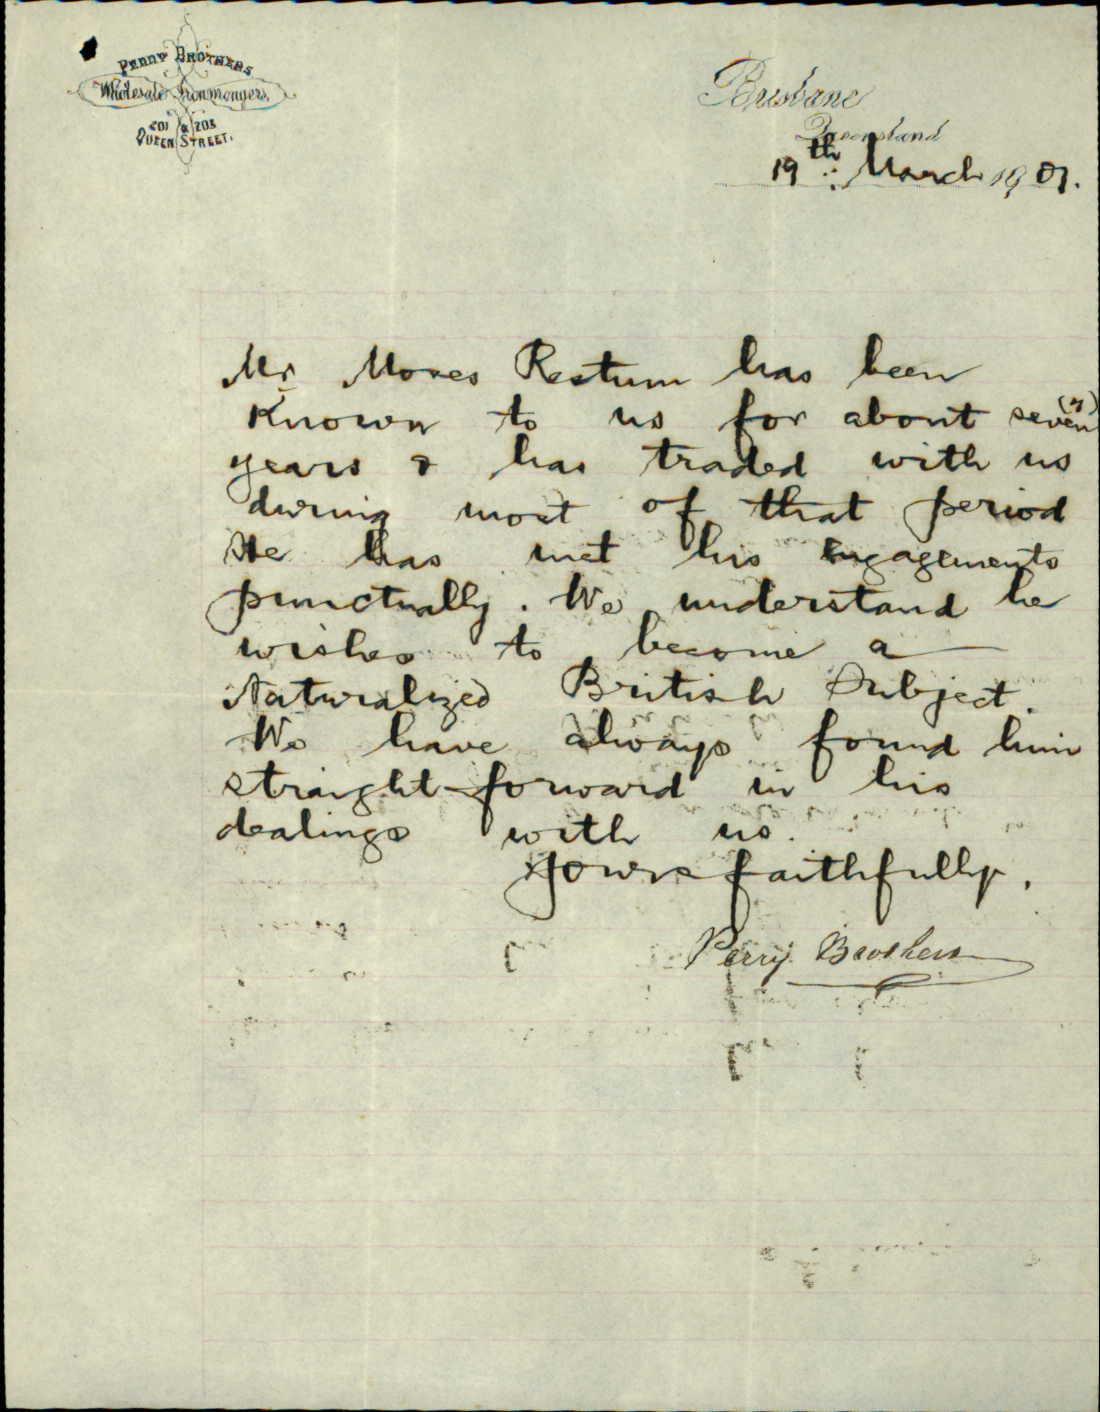 PERRY BROTHERS
Wholesale Ironmongers,
201 & 203
QUEEN STREET.
Brisbane
Queensland
19th March 1901.
Mr Moses Restum has been
Known to us for about seven (7)
years & has traded with us
during most of that period
He has met his engagements
punctually. We understand he
wishes to become a
Naturalized British Subject.
We have always found him
straight-forward in his
dealings with us.
Yours faithfully,
Perry Brothers